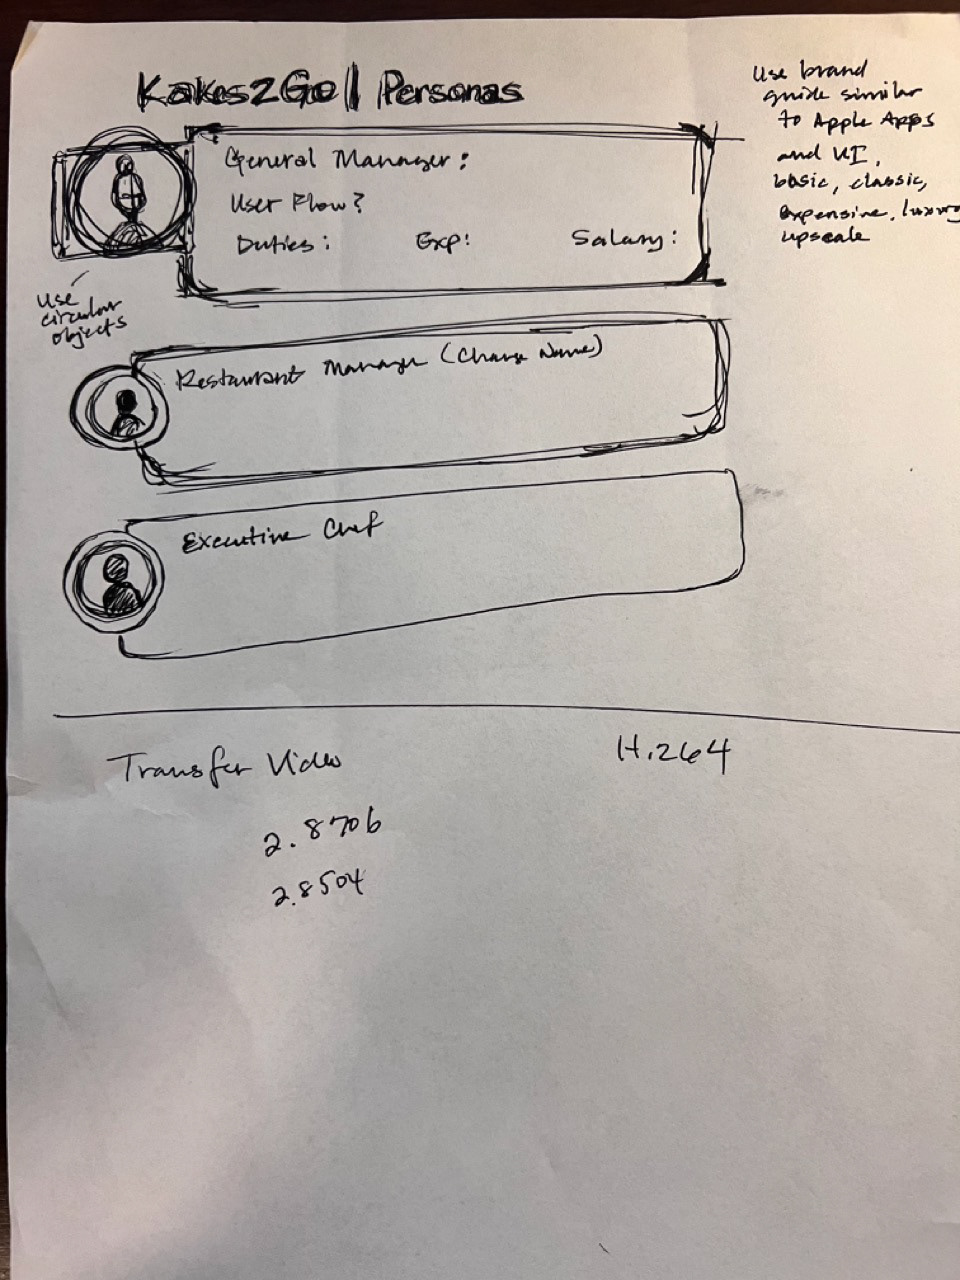 Kakes2Go | Personas
Use brand
guide similar
to Apple Apps
and UI,
basic, classic,
expensive, luxury
upscale
General Manager:
User Flow?
Duties: Exp: Salary:
Use
circular
objects
Restaurant Manager (Change Name)
Executive Chef
Transfer Video H.264
2.8706
2.8504